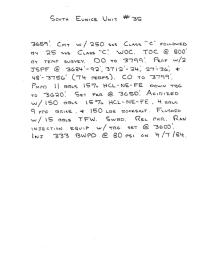 SOUTH EUNICE UNIT # 35
3659'. CMT W/ 250 SXS CLASS "C" FOLLOWED
BY 25 SXS CLASS "C". WOC. TOC @ 800'
BY TEMP SURVEY. DO TO 3799'. PERF W/2
JSPF @ 3624'-92', 3712'-24', 27-36', &
48'-3756' (74 PERFS). CO TO 3799'.
PUMP 11 BBLS 15% HCL-NE-FE DOWN TBG
TO 3620'. SET PKR @ 3650'. ACIDIZED
W/150 BBLS 15% HCL-NE-FE, 4 BBLS
9 PPG BRINE, & 150 LBS ROCKSALT. FLUSHED
W/ 15 BBLS TFW. SWBD. REL PKR. RAN
INJECTION EQUIP W/TBG SET @ 3600'.
INJ 333 BWPD @ 80 PSI ON 4/7/84.